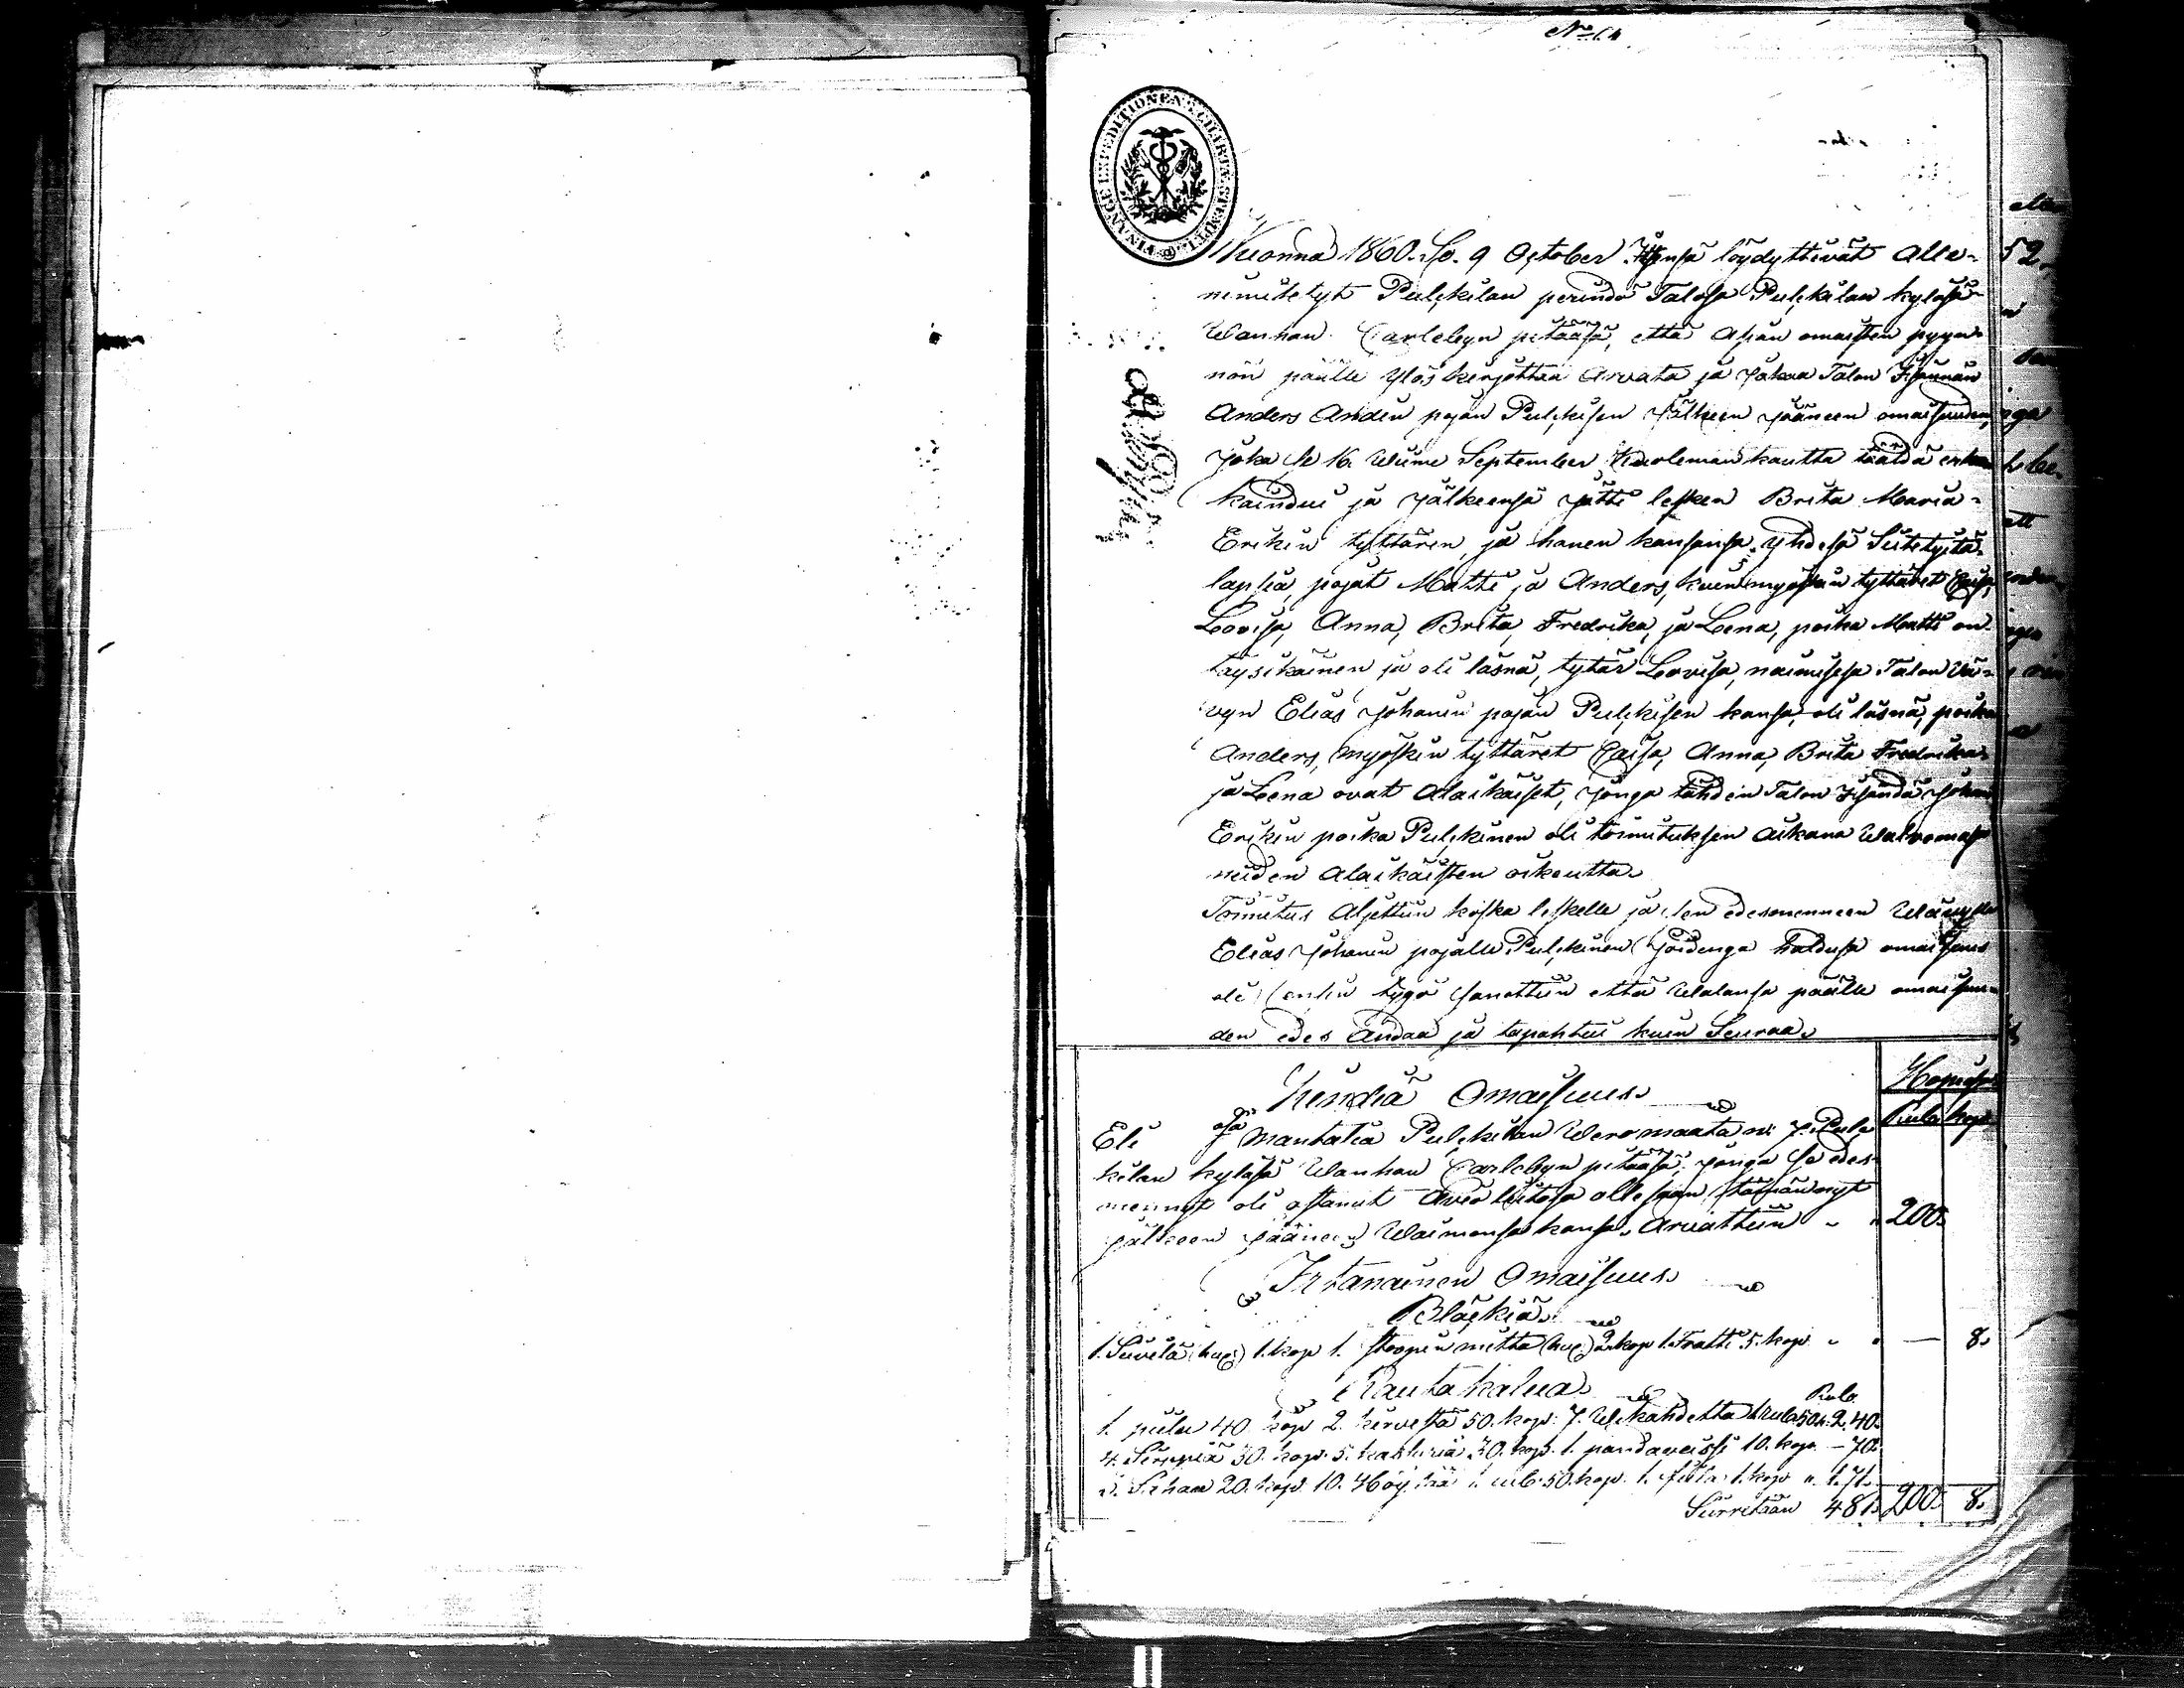 FINANCE EXPEDITIONEN CHARTÆ STEMPEL
Wuonna 1860. S. 9 October löydyttivät alle-
nimitetyt Pulckilan perindö Talosa Pulckilan kyläsä
Wanhan Carlebyn pitääsä, että asian omaisten pyyn-
nön päälle ylös kirjottaa arvata ja jakaa Talon Isännän
Anders Andin pojan Pulckisen jälkeen jääneen omaisuuden,
joka se 16. Wiime September Kuoleman kautta tääldä
kaindui ja jälkeensä jätti lesken Brita Maria
Erikin tyttären, ja hänen kansansa yhdesä Siitetyitä
lapsia, pojat Matti ja Anders, kuin myöskin tyttäret Caisa,
Lovisa, Anna, Brita Fredrika, ja Leena, poika Matti on
täysikäinen ja oli läsnä, tytär Lovisa, naimisesa Talon Vä-
vyn Elias Johanin pojan Pulckisen kansa, oli läsnä, poika
Anders, myöskin tyttäret Caisa, Anna, Brita Fredrika
ja Leena ovat alaikäiset, jonga tähden Talon Isändä Johan
Erikin poika Pulckinen oli toimituksen aikana Walvomasa
niiden alaikäisten oikeutta.
Toimitus aljettiin koska leskelle ja sen edesmenneen Wävylle
Elias Johanin pojalle Pulckinen (joidenga haldusa omaisuus
oli) ensin tygö sanottiin että Walansa päälle omaisuu-
den edes andaa ja tapahtui kuin Seuraa.
Kiindiä Omaisuus.
Hopiasa
Rubla kop.
Eli osa Mantalia Pulckilan Weromaata N: 7. Pulc-
kilan kyläsä Wanhan Carlebyn pitääsä, jonga se edes-
mennyt oli ostanut Avioliitosa ollesaan tämän nyt
jälkeen jääneen Waimonsa kansa, Arvattiin " " 200.
Irtanainen Omaisuus
Bläckiä.
1. Siivilä 1. kop 1. stoopin mitta 2. kop 1. Tratti 5. kop " " — 8.
Rauta kalua
Rub.
1. piilu 40 kop 2. kirvestä 50. kop. 7. Wikahdetta 1 rub. 50 k. 2. 40.
4. Sirppiä 30. kop. 5. 30. kop. 1. 10. kop. – 70.
20. kop. 10. 1. rub. 50. kop. 1. 1. kop " 1. 71.
Siirretään 4 81. 200. 8.